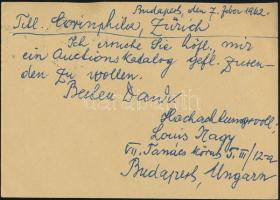 Budapest, den 7. feber 1962.
Titl. Corinphila, Zürich
Ich ersuche Sie höfl. mir
ein Auctionskatalog gefl. zusen-
den zu wollen.
Besten Dank.
Hochachtungsvoll,
Louis Nagy
VII. Tanács körút 5. III/12-a
Budapest, Ungarn